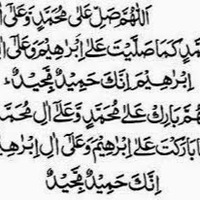 اَللّٰهُمَّ صَلِّ عَلٰى مُحَمَّدٍ وَّعَلٰٓى اٰلِ
كَمَا صَلَّيْتَ عَلٰٓى اِبْرٰهِيْمَ وَعَلٰٓى
اِبْرٰهِيْمَ اِنَّكَ حَمِيْدٌ مَّجِيْدٌ
بَارِكْ عَلٰى مُحَمَّدٍ وَّعَلٰٓى اٰلِ مُحَمَّدٍ
بَارَكْتَ عَلٰٓى اِبْرٰهِيْمَ وَعَلٰٓى اٰلِ
اِنَّكَ حَمِيْدٌ مَّجِيْدٌ